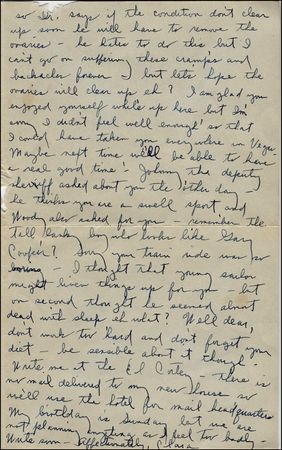 so Dr. says if the condition don't clear
up soon he will have to remove the
ovaries - he hates to do this but I
can't go on suffering these cramps and
backaches forever - but lets hope the
ovaries will clear up eh? I am glad you
enjoyed yourself while up here but I'm
sorry I didn't feel well enough so that
I could have taken you everywhere in Vegas
Maybe next time we'll be able to have
a real good time - Johnny the deputy
sheriff asked about you the other day -
he thinks you are a swell sport and
Woody also asked for you - remember the
tall lanky boy who looks like Gary
Cooper? Sorry your train ride was so
boring - I thought that young sailor
might liven things up for you - but
on second thought he seemed almost
dead with sleep eh what? Well dear,
don't work too hard and don't forget your
diet - be sensible about it though -
Write me at the El Cortez - there is
no mail delivered to my new house so
we'll use the hotel for mail headquarters
My birthday is Sunday but we are
not planning anything as I feel too badly -
Write soon - affectionately, Clara